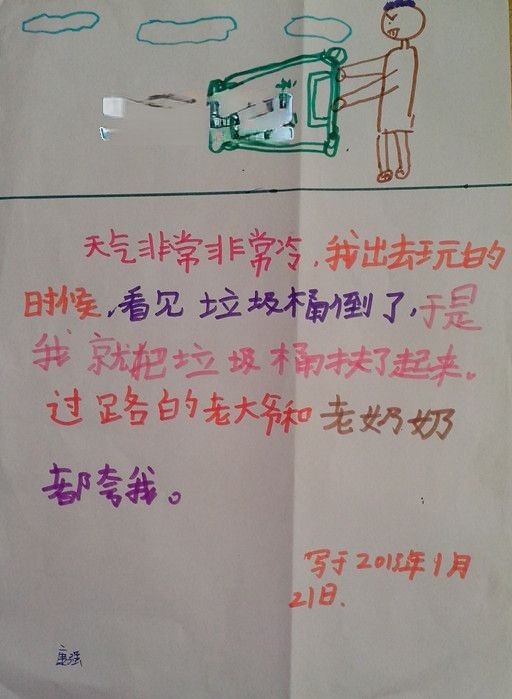 天气非常非常冷,我出去玩的
时候,看见垃圾桶倒了,于是
我就把垃圾桶扶了起来。
过路的老大爷和老奶奶
都夸我。
写于2015年1月
21日.